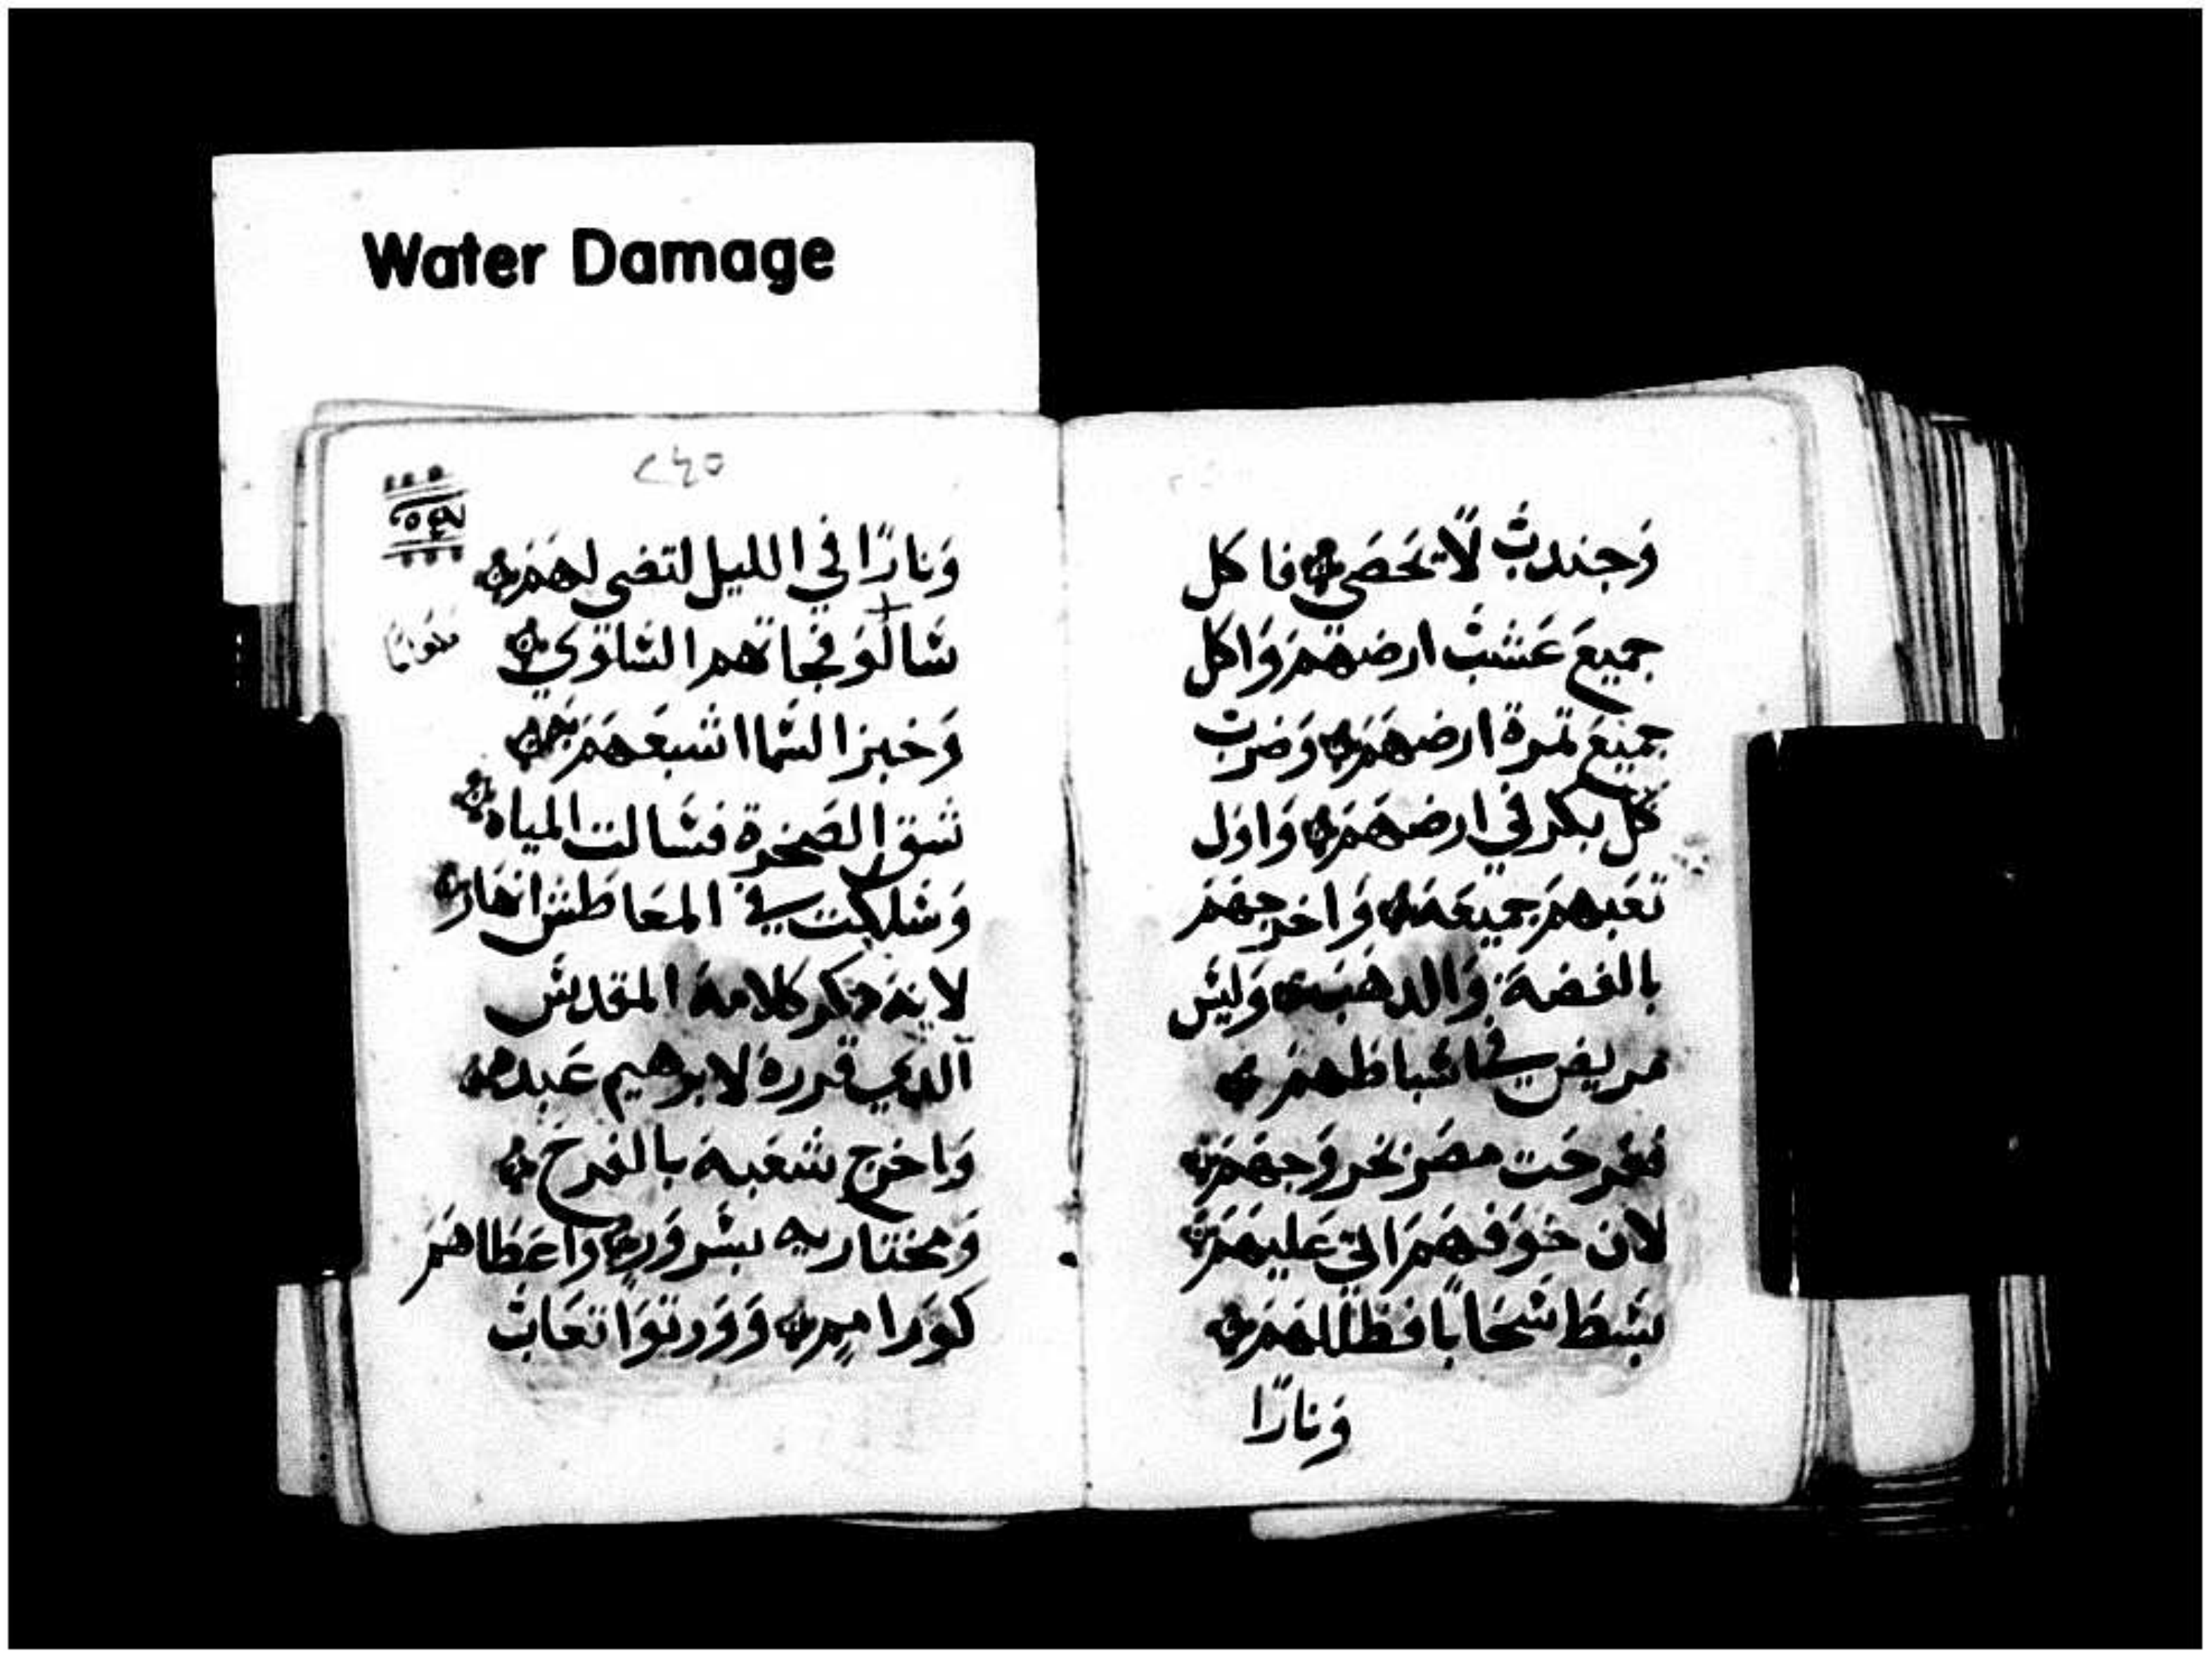 Water Damage
وَجندبٌ لَا تحَصَى فاكل
جميعَ عَشبْ ارضهمَ وَاكل
جميعَ تمرة ارضهمَ وَضربْ
كل بكر في ارضهمَ وَاوَل
تعَبهمَ جميعَه وَاخرجهمَ
بالفضة وَالدهبَ وَليسَ
مريض في اسْباطهمَ
ففرحَت مصَر بخروَجهمَ
لان خوَفهمَ اتى عليهمَ
بسَط سَحَابًا فظللهمَ
وَنارًا
٢٤٥
وَنارًا في الليل لتضى لهمَ
سَالَوَ فجاتهم السَلوَى
وَخبز السَما اشبعَهمَ
شق الصَخرة فسَالت المياه
وَسَلكت في المعَاطش انهار
لانه دكر كلامه المقدسَ
الدي قررهُ لابرهيم عَبده
وَاخرج شعَبه بالفرحَ
وَمختاريه بسَروَر وَاعَطاهمَ
كوَر امم وَوَرتوَا تعَابْ